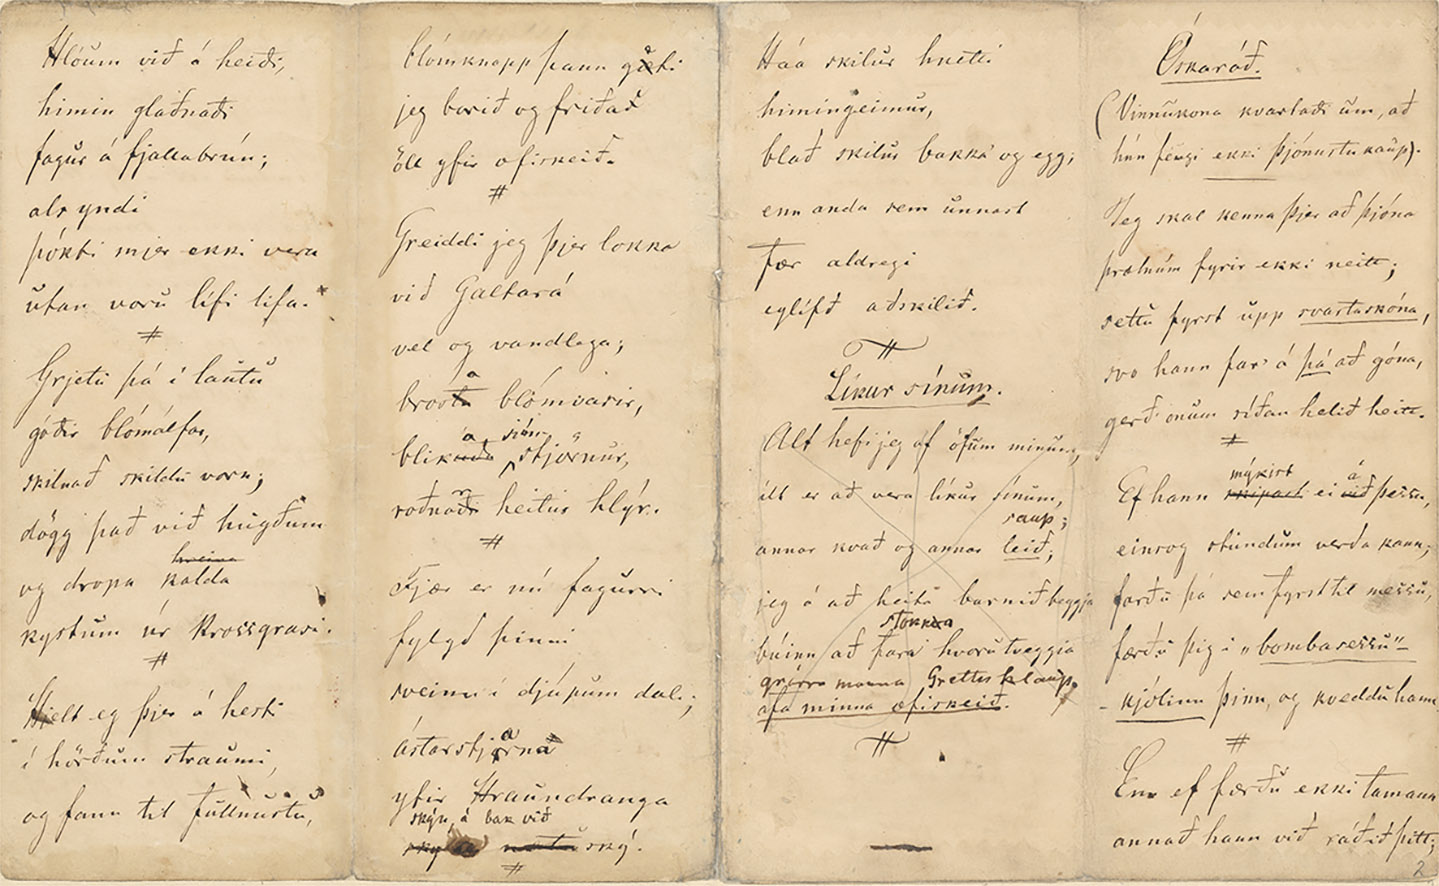 Hlóum við á heiði,
himin glaðnaði
fagur á fjallabrún;
als yndi
þókti mjer ekki vera
utan voru lífi lifa.
#
Grjetu þá í lautu
góðir blómálfar,
skilnað skildu vorn;
dögg það við hugðum
hreina
og dropa kalda
kystum úr krossgrasi.
#
Hjelt eg þjer á hesti
í hörðum straumi,
og fann til fullnustu,
blómknapp þann gæti
jeg borið og friðað
öll yfir æfiskeið.
#
Greiddi jeg þjer lokka
við Galtará
vel og vandlega;
a
brosta blómvarir,
a, sión
blikuðu stjörnur,
roðnaði heitur hlýr.
#
Fjær er nú fagurri
fylgd þinni
sveinn í djúpum dal;
ástarstjarna
yfir Hraundranga
skýn, á bak við
ský.
#
Háa skilur hnetti
himingeimur,
blað skilur bakka og egg;
enn anda sem unnast
fær aldregi
eylífð aðskilið.
#
Líkur sínum.
Alt hefi jeg af öfum mínum,
ilt er að vera líkur sínum,
raup;
annar kvað og annar leið;
jeg á að heita barnið beggja
stokkva
búinn að fara hvorutveggja
manna Grettis hlaup.
afa minna æfiskeið.
#
Óskaráð.
(Vinnukona kvartaði um, að
hún fengi ekki þjónustukaup).
Jeg skal kenna þjer að þjóna
þrælnum fyrir ekki neitt;
settu fyrst upp svartaskóna,
svo hann far' á þá að góna,
gerð' onum síðan helið heitt.
#
mýkist á
Ef hann skipast ei við þessu,
einsog stundum verða kann;
farðu þá sem fyrst til messu,
færðu þig í „bombasessu"-
-kjólinn þinn, og kveddu hann.
#
Enn ef færðu ekki tamann
annað hann við ráðið þitt;
2